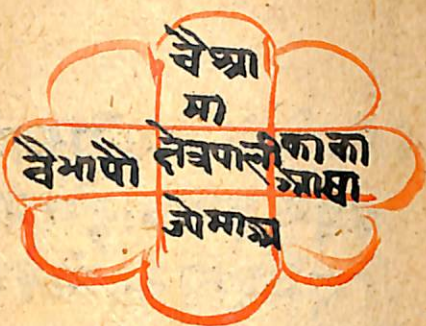 वैश्रा
मा
वैभापौ क्षेत्रपाली काका
आषा
जेमाश्र